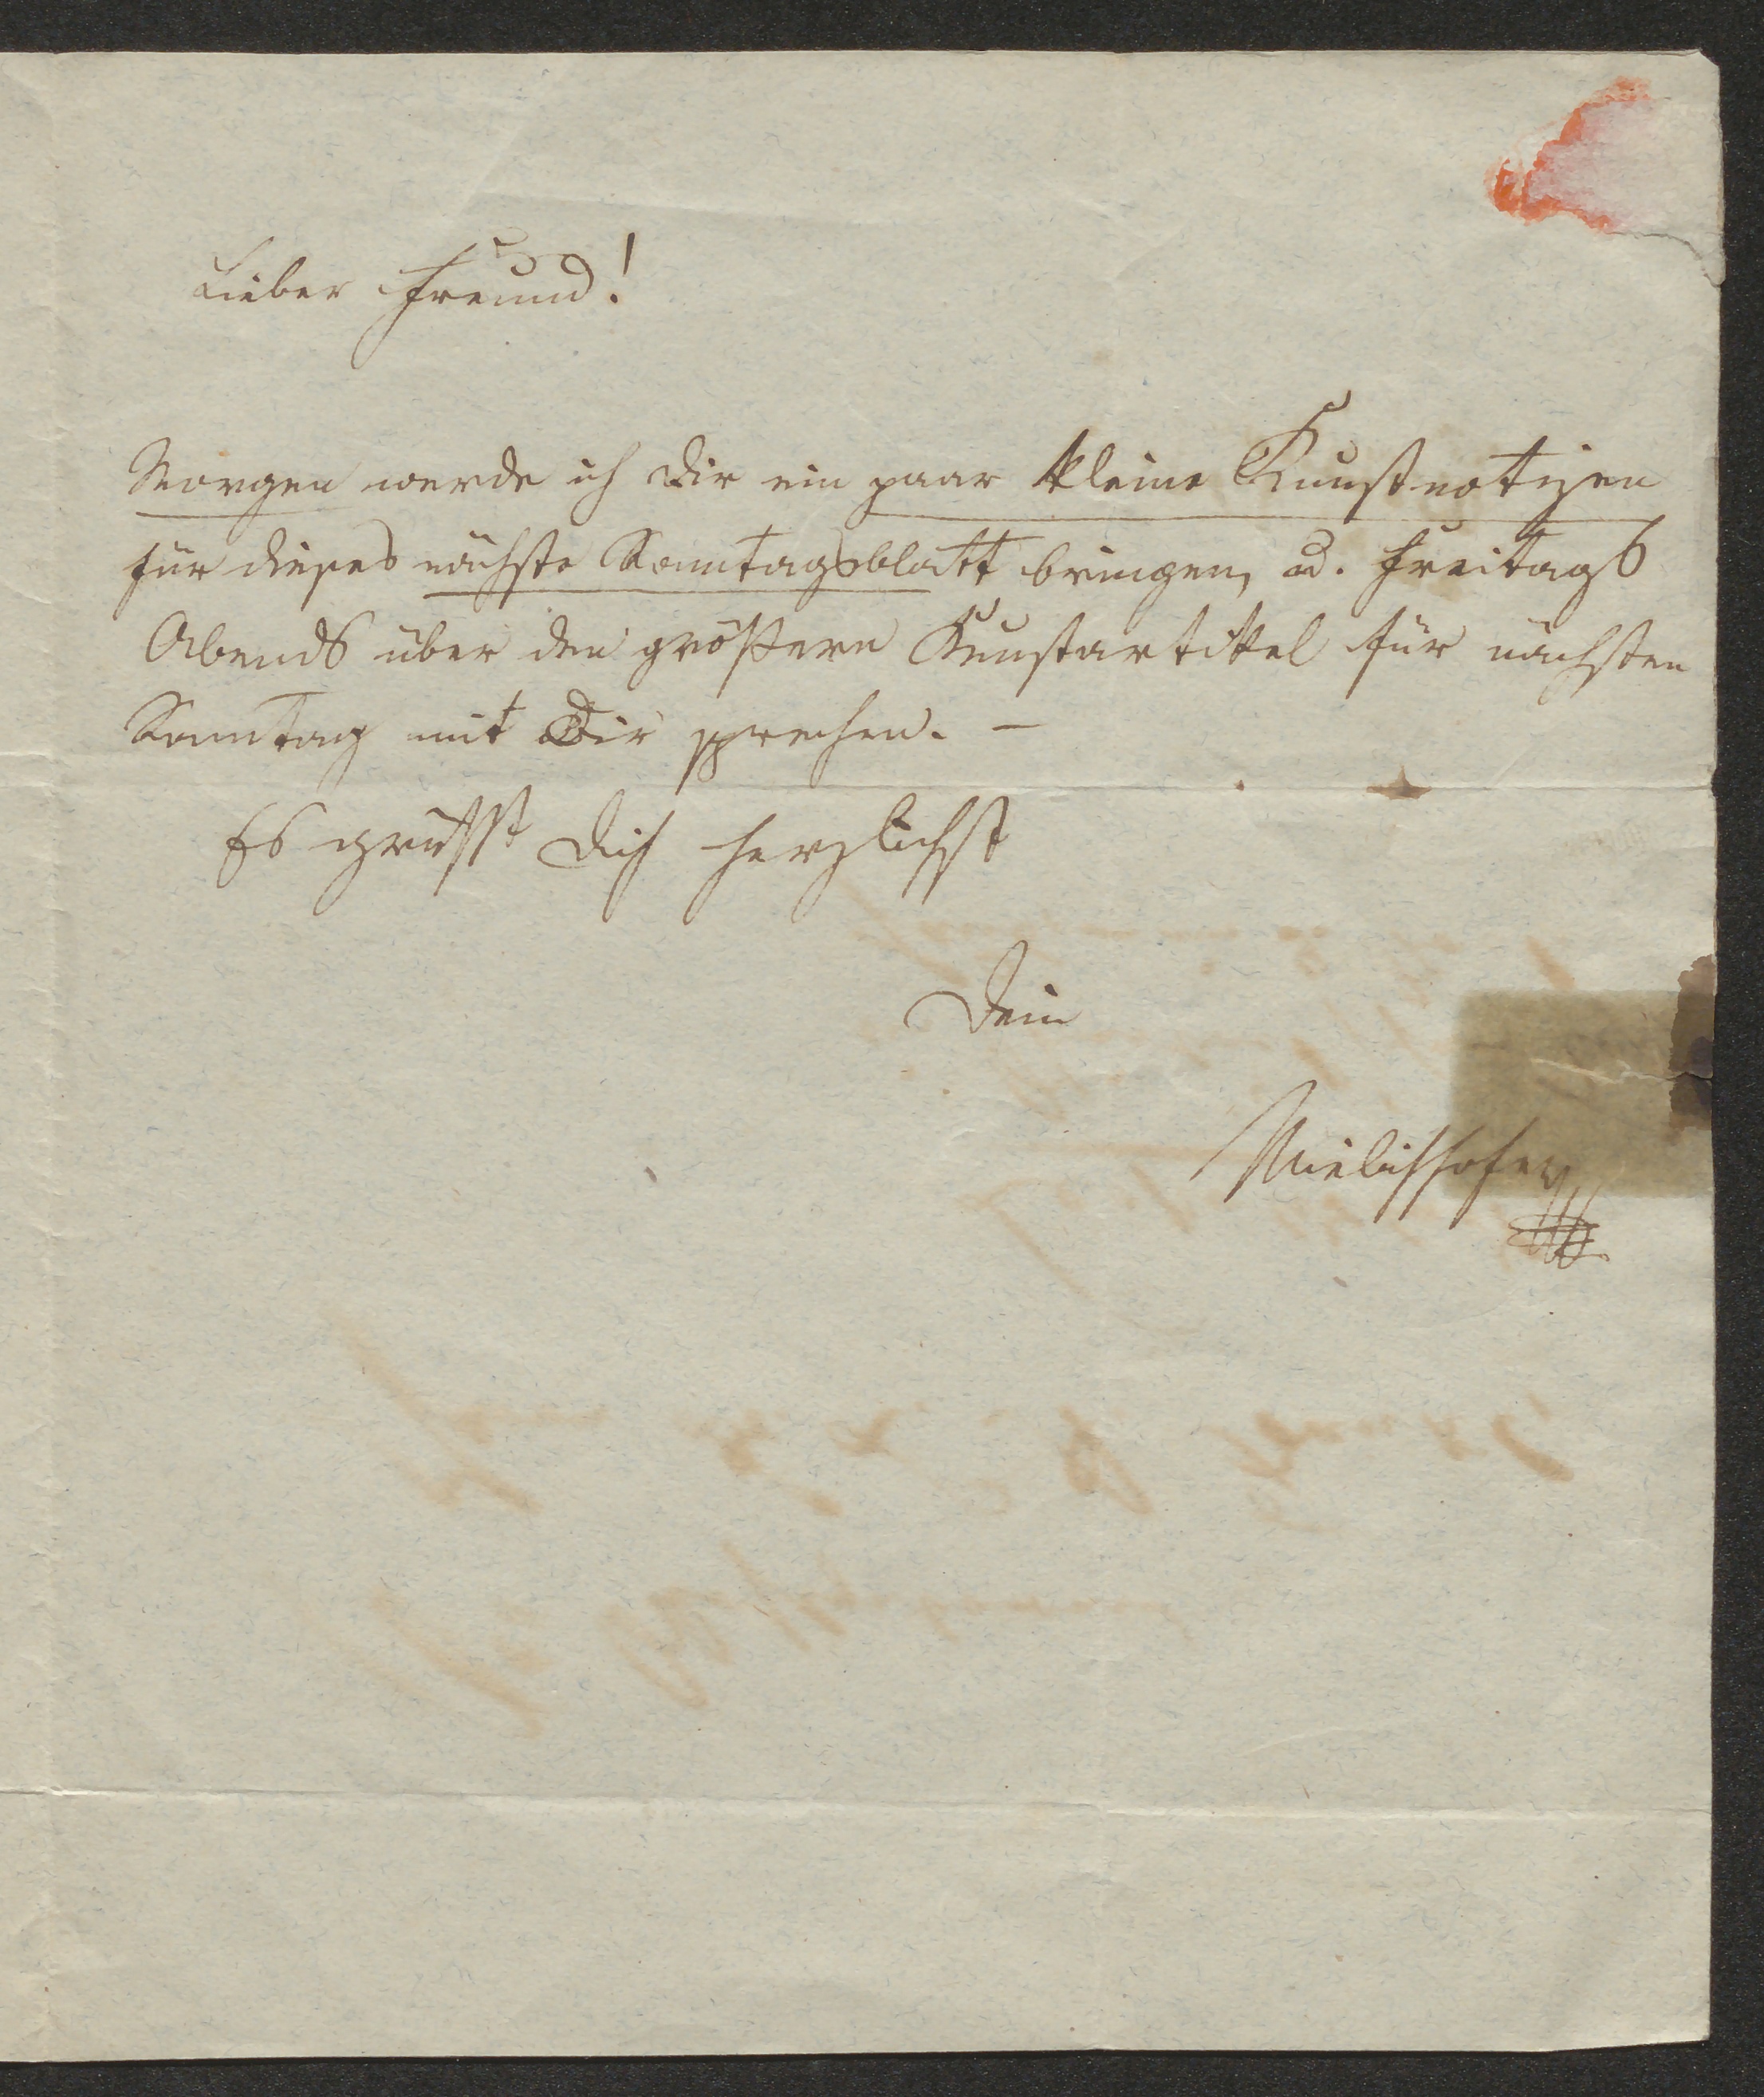 Lieber Freund!
Morgen werde ich Dir ein paar kleine Kunstnotizen
für dieses nächste Sonntagsblatt bringen, u. Freitags
Abends über den größern Kunstartikel für nächsten
Sonntag mit Dir sprechen. –
Es grüßt Dich herzlichst
Dein
Mielichhofer